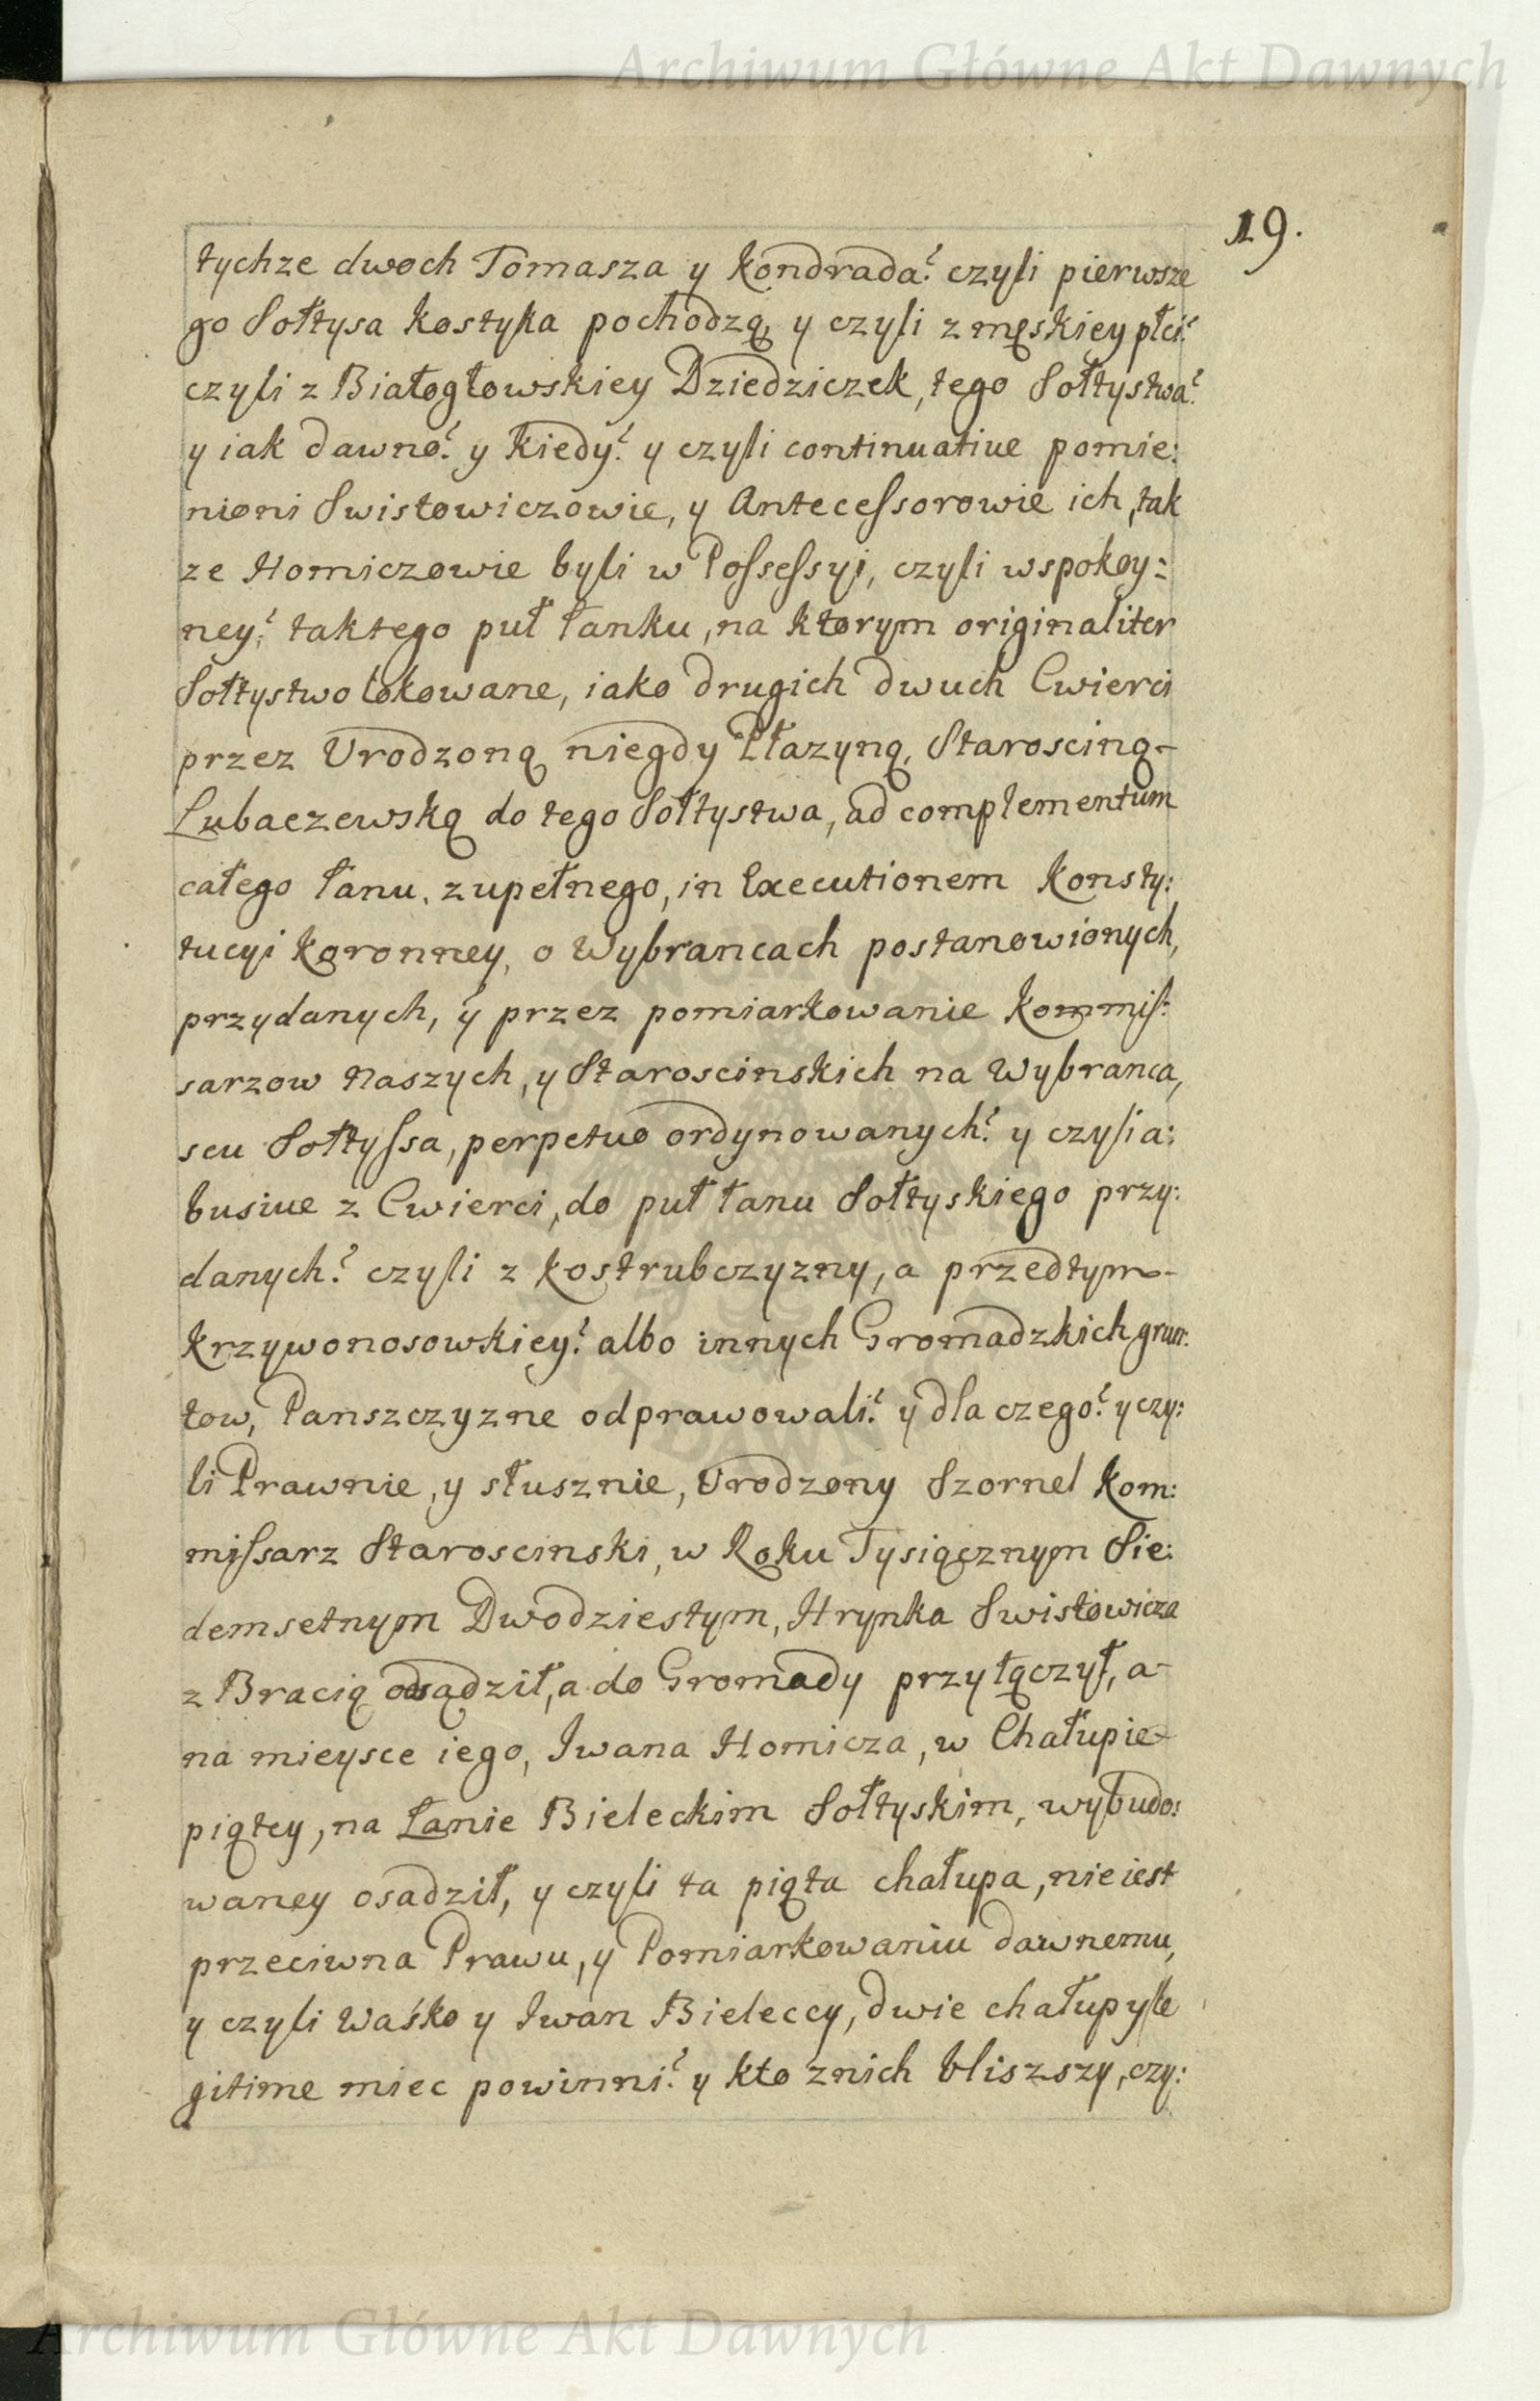 Archiwum Główne Akt Dawnych
19.
tychze dwoch Tomasza y Kondrada? czyli pierwsze
go Sołtysa Kostyka pochodzą, y czyli z męskiey płci?
czyli z Białogłowskiey Dziedziczek, tego Sołtystwa?
y iak dawno? y kiedy? y czyli continuative pomie:
nioni Swistowiczowie, y Antecessorowie ich, tak
ze Homiczowie byli w Possessyi, czyli wspokoy:
ney? taktego puł łanku, na ktorym originaliter
Sołtystwo lokowane, iako drugich dwuch Cwierci
przez Urodzoną niegdy Płazyną, Staroscing-
Lubaczewską do tego Sołtystwa, ad complementum
całego łanu. zupełnego, in Executionem Konsty:
tucyi Koronney, o Wybrancach postanowionych,
przydanych, y przez pomiarkowanie Kommis:
sarzow Naszych, y Staroscinskich na Wybranca,
seu Sołtyssa, perpetuo ordynowanych? y czyli a:
busive z Cwierci, do puł łanu Sołtyskiego przy:
danych? czyli z Kostrubczyzny, a przedtym-
Krzywonosowkiey? albo innych Gromadzkich grun:
tow, Panszczyzne odprawowali? y dla czego? y czy:
li Prawnie, y słusznie, Urodzony Szornel Kom:
missarz Staroscinski, w Roku Tysiącznym Sie:
demsetnym Dwodziestym, Hrynka Swistowicza
z Bracią odsądził, a do Gromady przyłączył, a-
na mieysce iego, Iwana Homicza, w Chałupie-
piątey, na Łanie Bieleckim Sołtyskim, wybudo:
waney osadził, y czyli ta piąta chałupa, nie iest
przeciwna Prawu, y Pomiarkowaniu dawnemu,
y czyli Waśko y Iwan Bieleccy, dwie chałupy le
gitime miec powinni? y kto znich bliszszy, czy:
Archiwum Główne Akt Dawnych